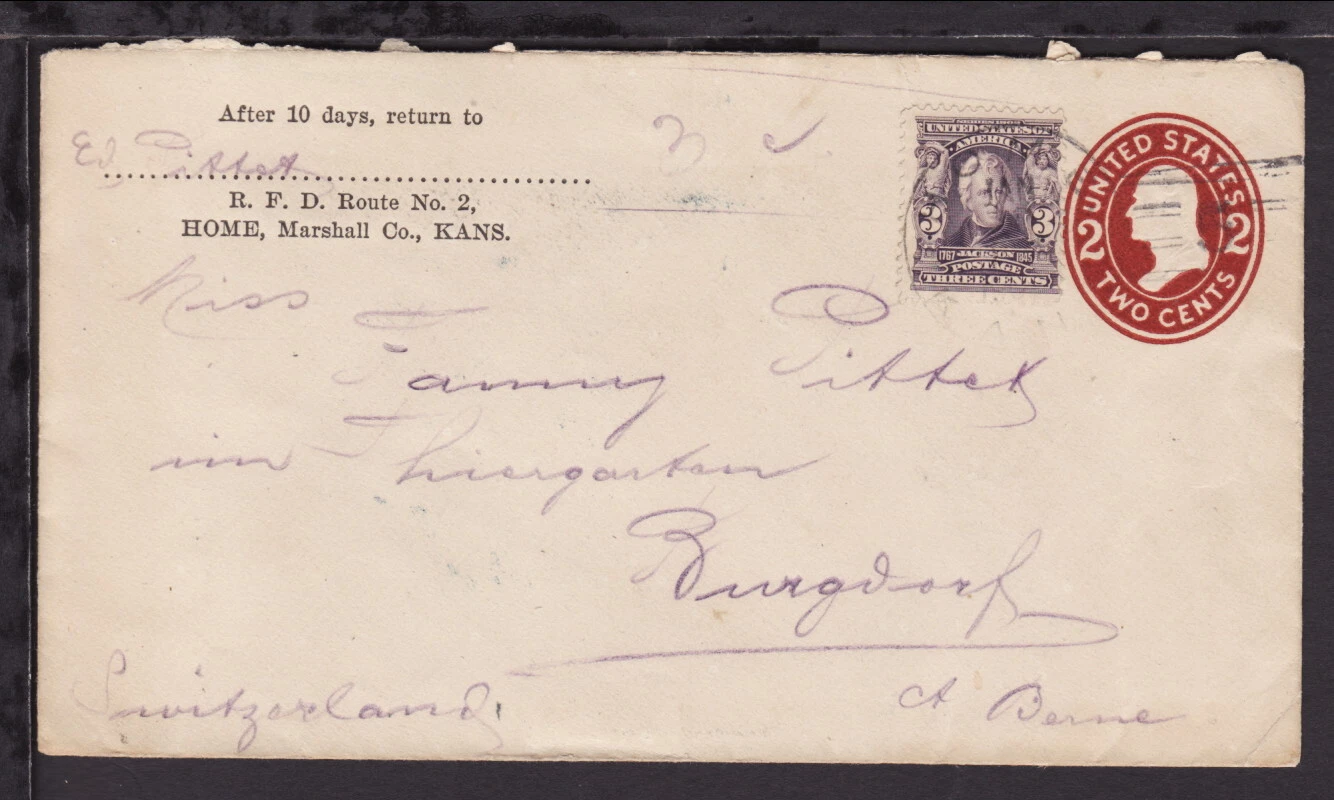 After 10 days, return to
Ed. Pittet
R. F. D. Route No. 2,
HOME, Marshall Co., KANS.
UNITED STATES OF
AMERICA
3 3
1767 JACKSON 1845
POSTAGE
THREE CENTS
UNITED STATES
2 2
TWO CENTS
Miss
Fanny Pittet
im Thiergarten
Burgdorf
Switzerland. ct Berne